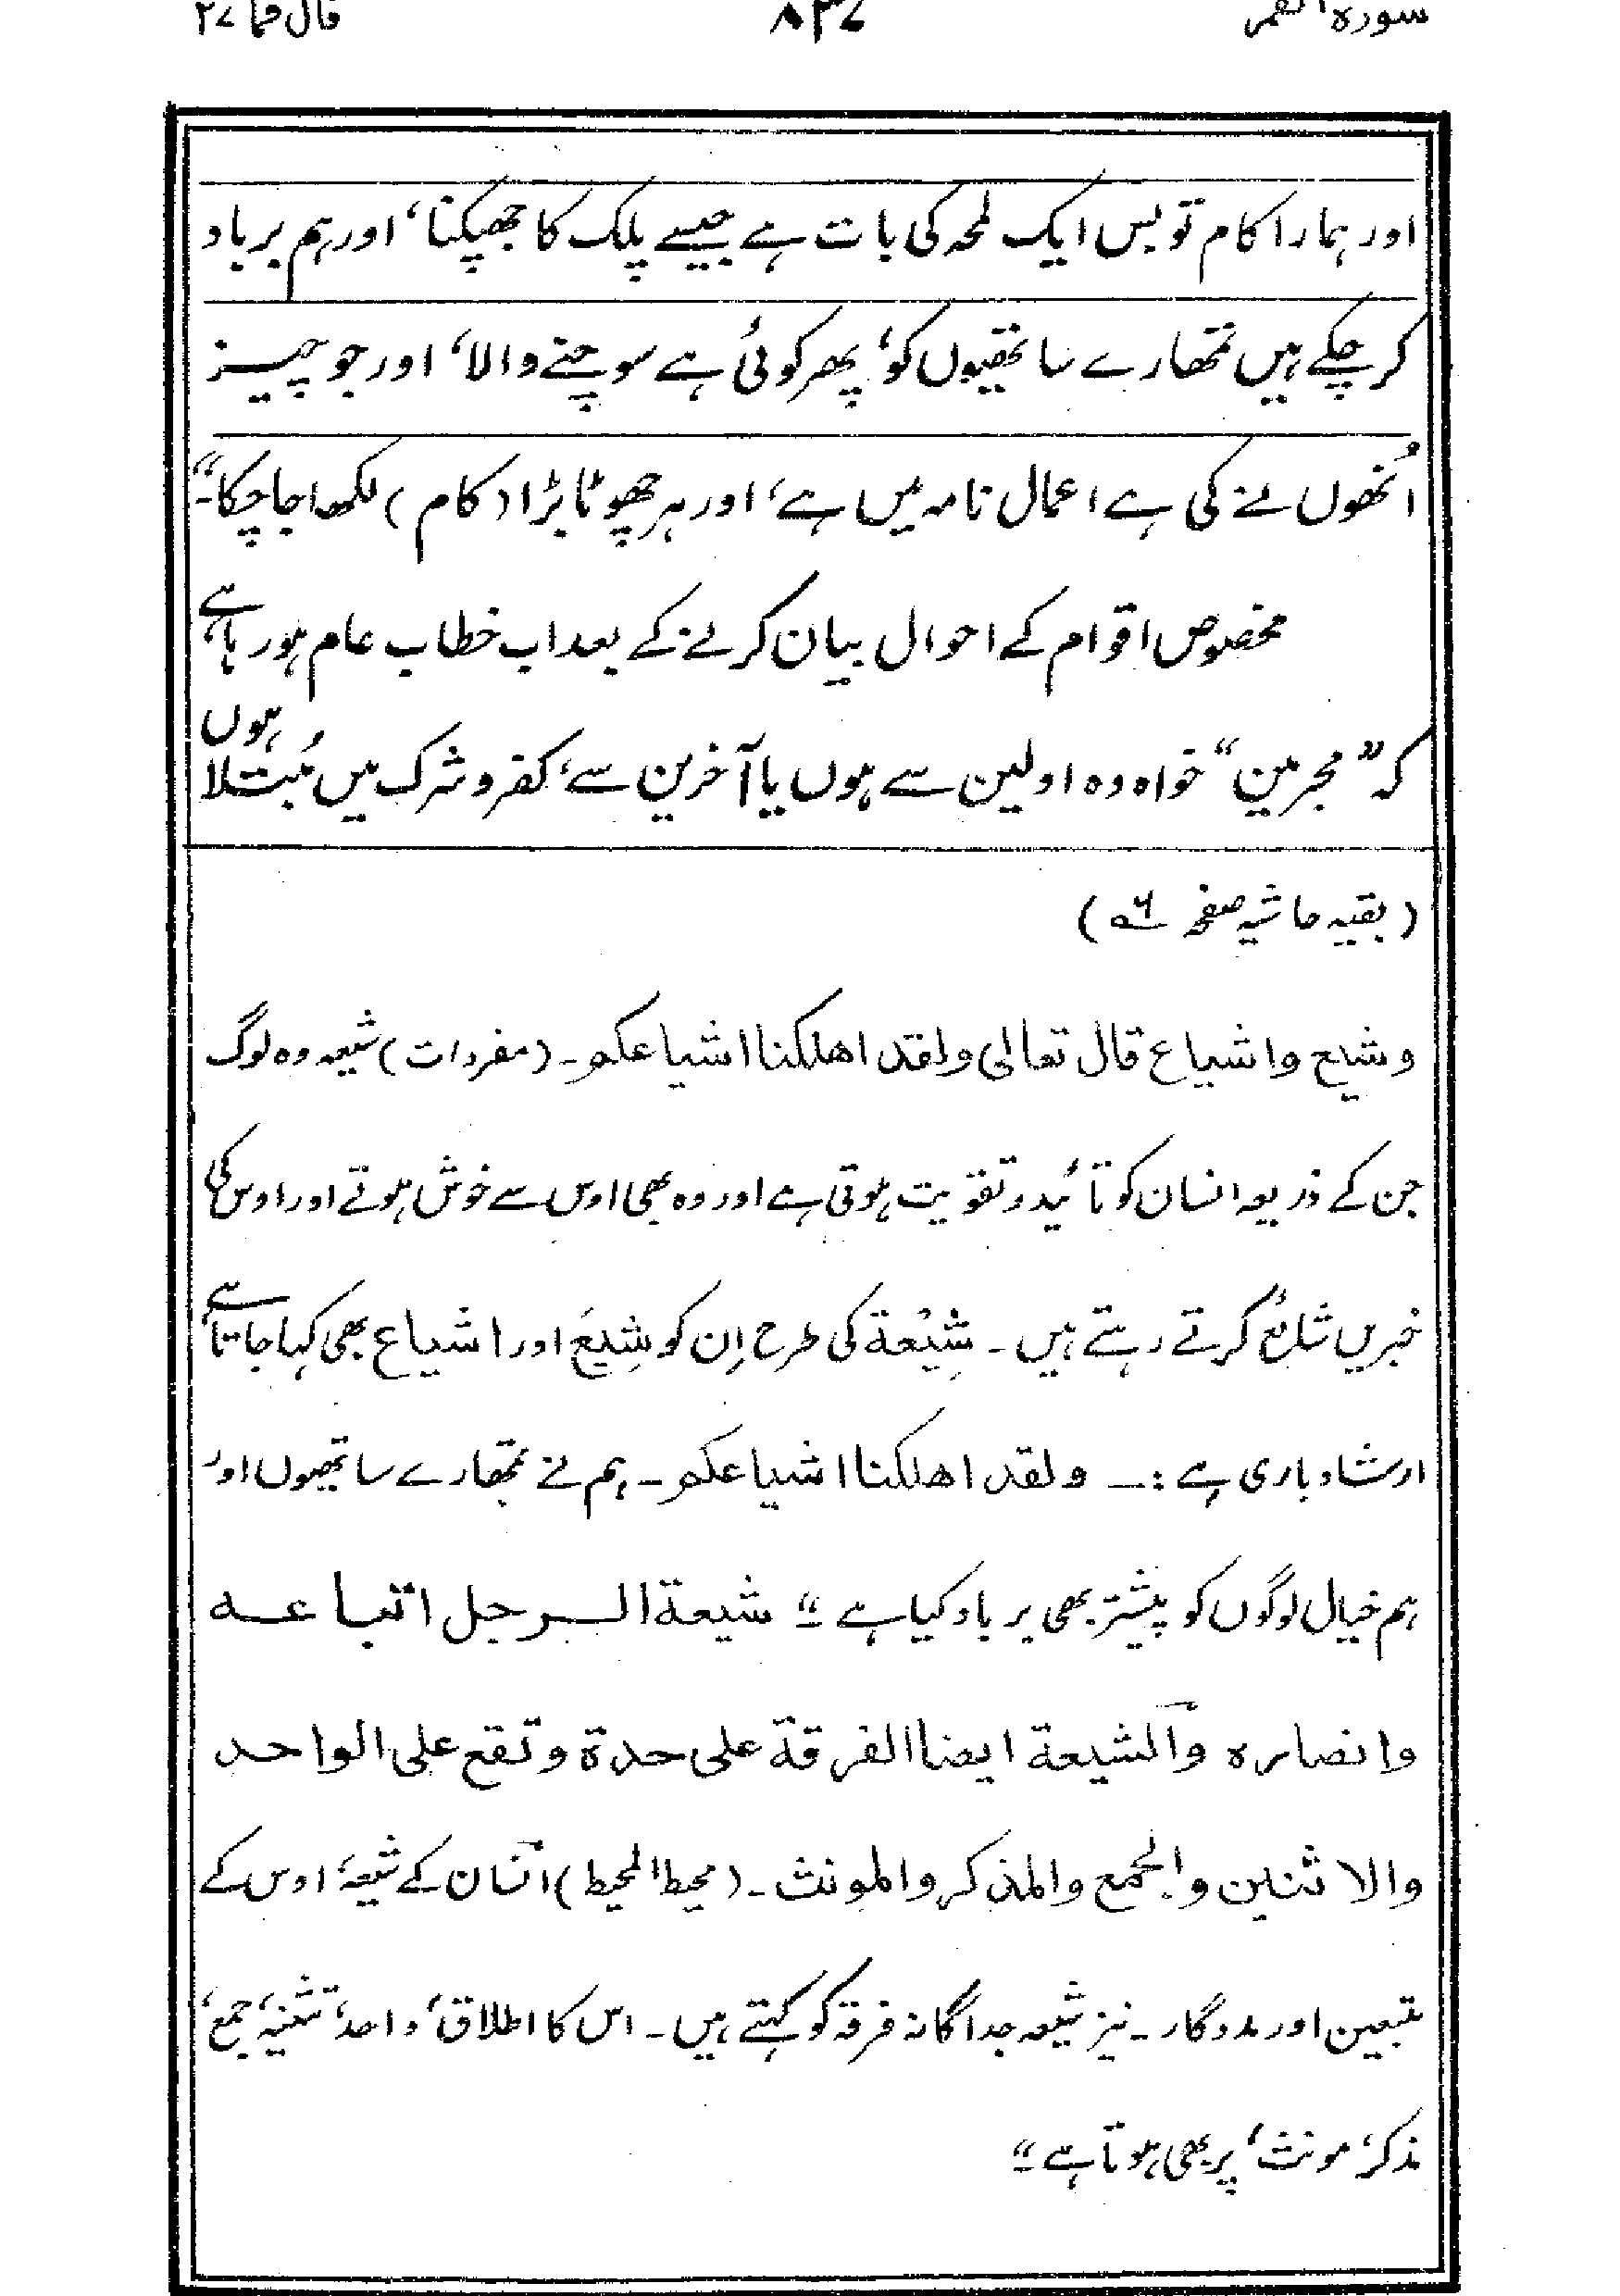 سورہ القمر ۸۳۷ قال فما ۲۷
اور ہمارا کام تو بس ایک لمحہ کی بات ہے جیسے پلک کا جھپکنا، اور ہم برباد
کر چکے ہیں تمھارے ساتھیوں کو، پھر کوئی ہے سوچنے والا، اور جو چیز
اُنھوں نے کی ہے اعمال نامہ میں ہے، اور ہر چھوٹا بڑا (کام) لکھا جا چکا۔“
مخصوص اقوام کے احوال بیان کرنے کے بعد اب خطاب عام ہو رہا ہے،
کہ ”مجرمین“ خواہ وہ اولین سے ہوں یا آخرین سے، کفر و شرک میں مُبتلا ہوں
(بقیہ حاشیہ صفحہ )
وشیع واشیاع قال تعالی ولقد اھلکنا اشیاعکم۔ (مفردات) شیعہ وہ لوگ
جن کے ذریعہ انسان کو تائید و تقویت ہوتی ہے اور وہ بھی اوس سے خوش ہوتے اور اوس کی
خبریں شائع کرتے رہتے ہیں۔ شِیْعَة کی طرح اِن کو شِیَع اور اشیاع بھی کہا جاتا ہے،
ارشاد باری ہے :۔ ولقد اھلکنا اشیاعکم۔ ہم نے تمھارے ساتھیوں اور
ہم خیال لوگوں کو پیشتر بھی برباد کیا ہے“۔ شیعة الرجل اتباعه
وانصاره والشیعة ایضا الفرقة علی حدة وتقع علی الواحد
والاثنین والجمع والمذکر والمونث۔ (محیط المحیط) انسان کے شیعہ، اوس کے
متبعین اور مددگار۔ نیز شیعہ جداگانہ فرقہ کو کہتے ہیں۔ اس کا اطلاق، واحد، تثنیہ، جمع،
مذکر، مونث، پر بھی ہوتا ہے“۔